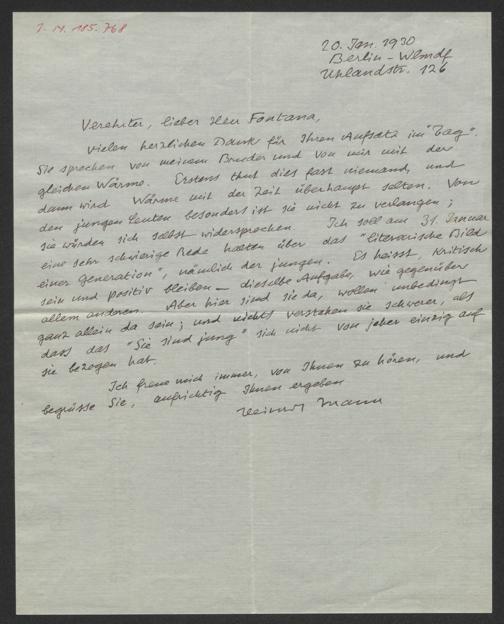 I. N. 185.768
20. Jan. 1930
Berlin-Wlmdf
Uhlandstr. 126
Verehrter, lieber Herr Fontana,
vielen herzlichen Dank für Ihren Aufsatz im "Tag".
Sie sprechen von meinem Bruder und von mir mit der
gleichen Wärme. Erstens thut dies fast niemand, und
dann wird Wärme mit der Zeit überhaupt selten. Von
den jungen Leuten besonders ist sie nicht zu verlangen;
sie würden sich selbst widersprechen. Ich soll am 31. Januar
eine sehr schwierige Rede halten über das "literarische Bild
einer Generation", nämlich der jungen. Es heisst, kritisch
sein und positiv bleiben – dieselbe Aufgabe, wie gegenüber
allem anderen. Aber hier sind sie da, wollen unbedingt
ganz allein da sein; und nichts verstehen sie schwerer, als
dass das "Sie sind jung" sich nicht von jeher einzig auf
sie bezogen hat.
Ich freue mich immer, von Ihnen zu hören, und
begrüsse Sie, aufrichtig Ihnen ergeben
Heinrich Mann